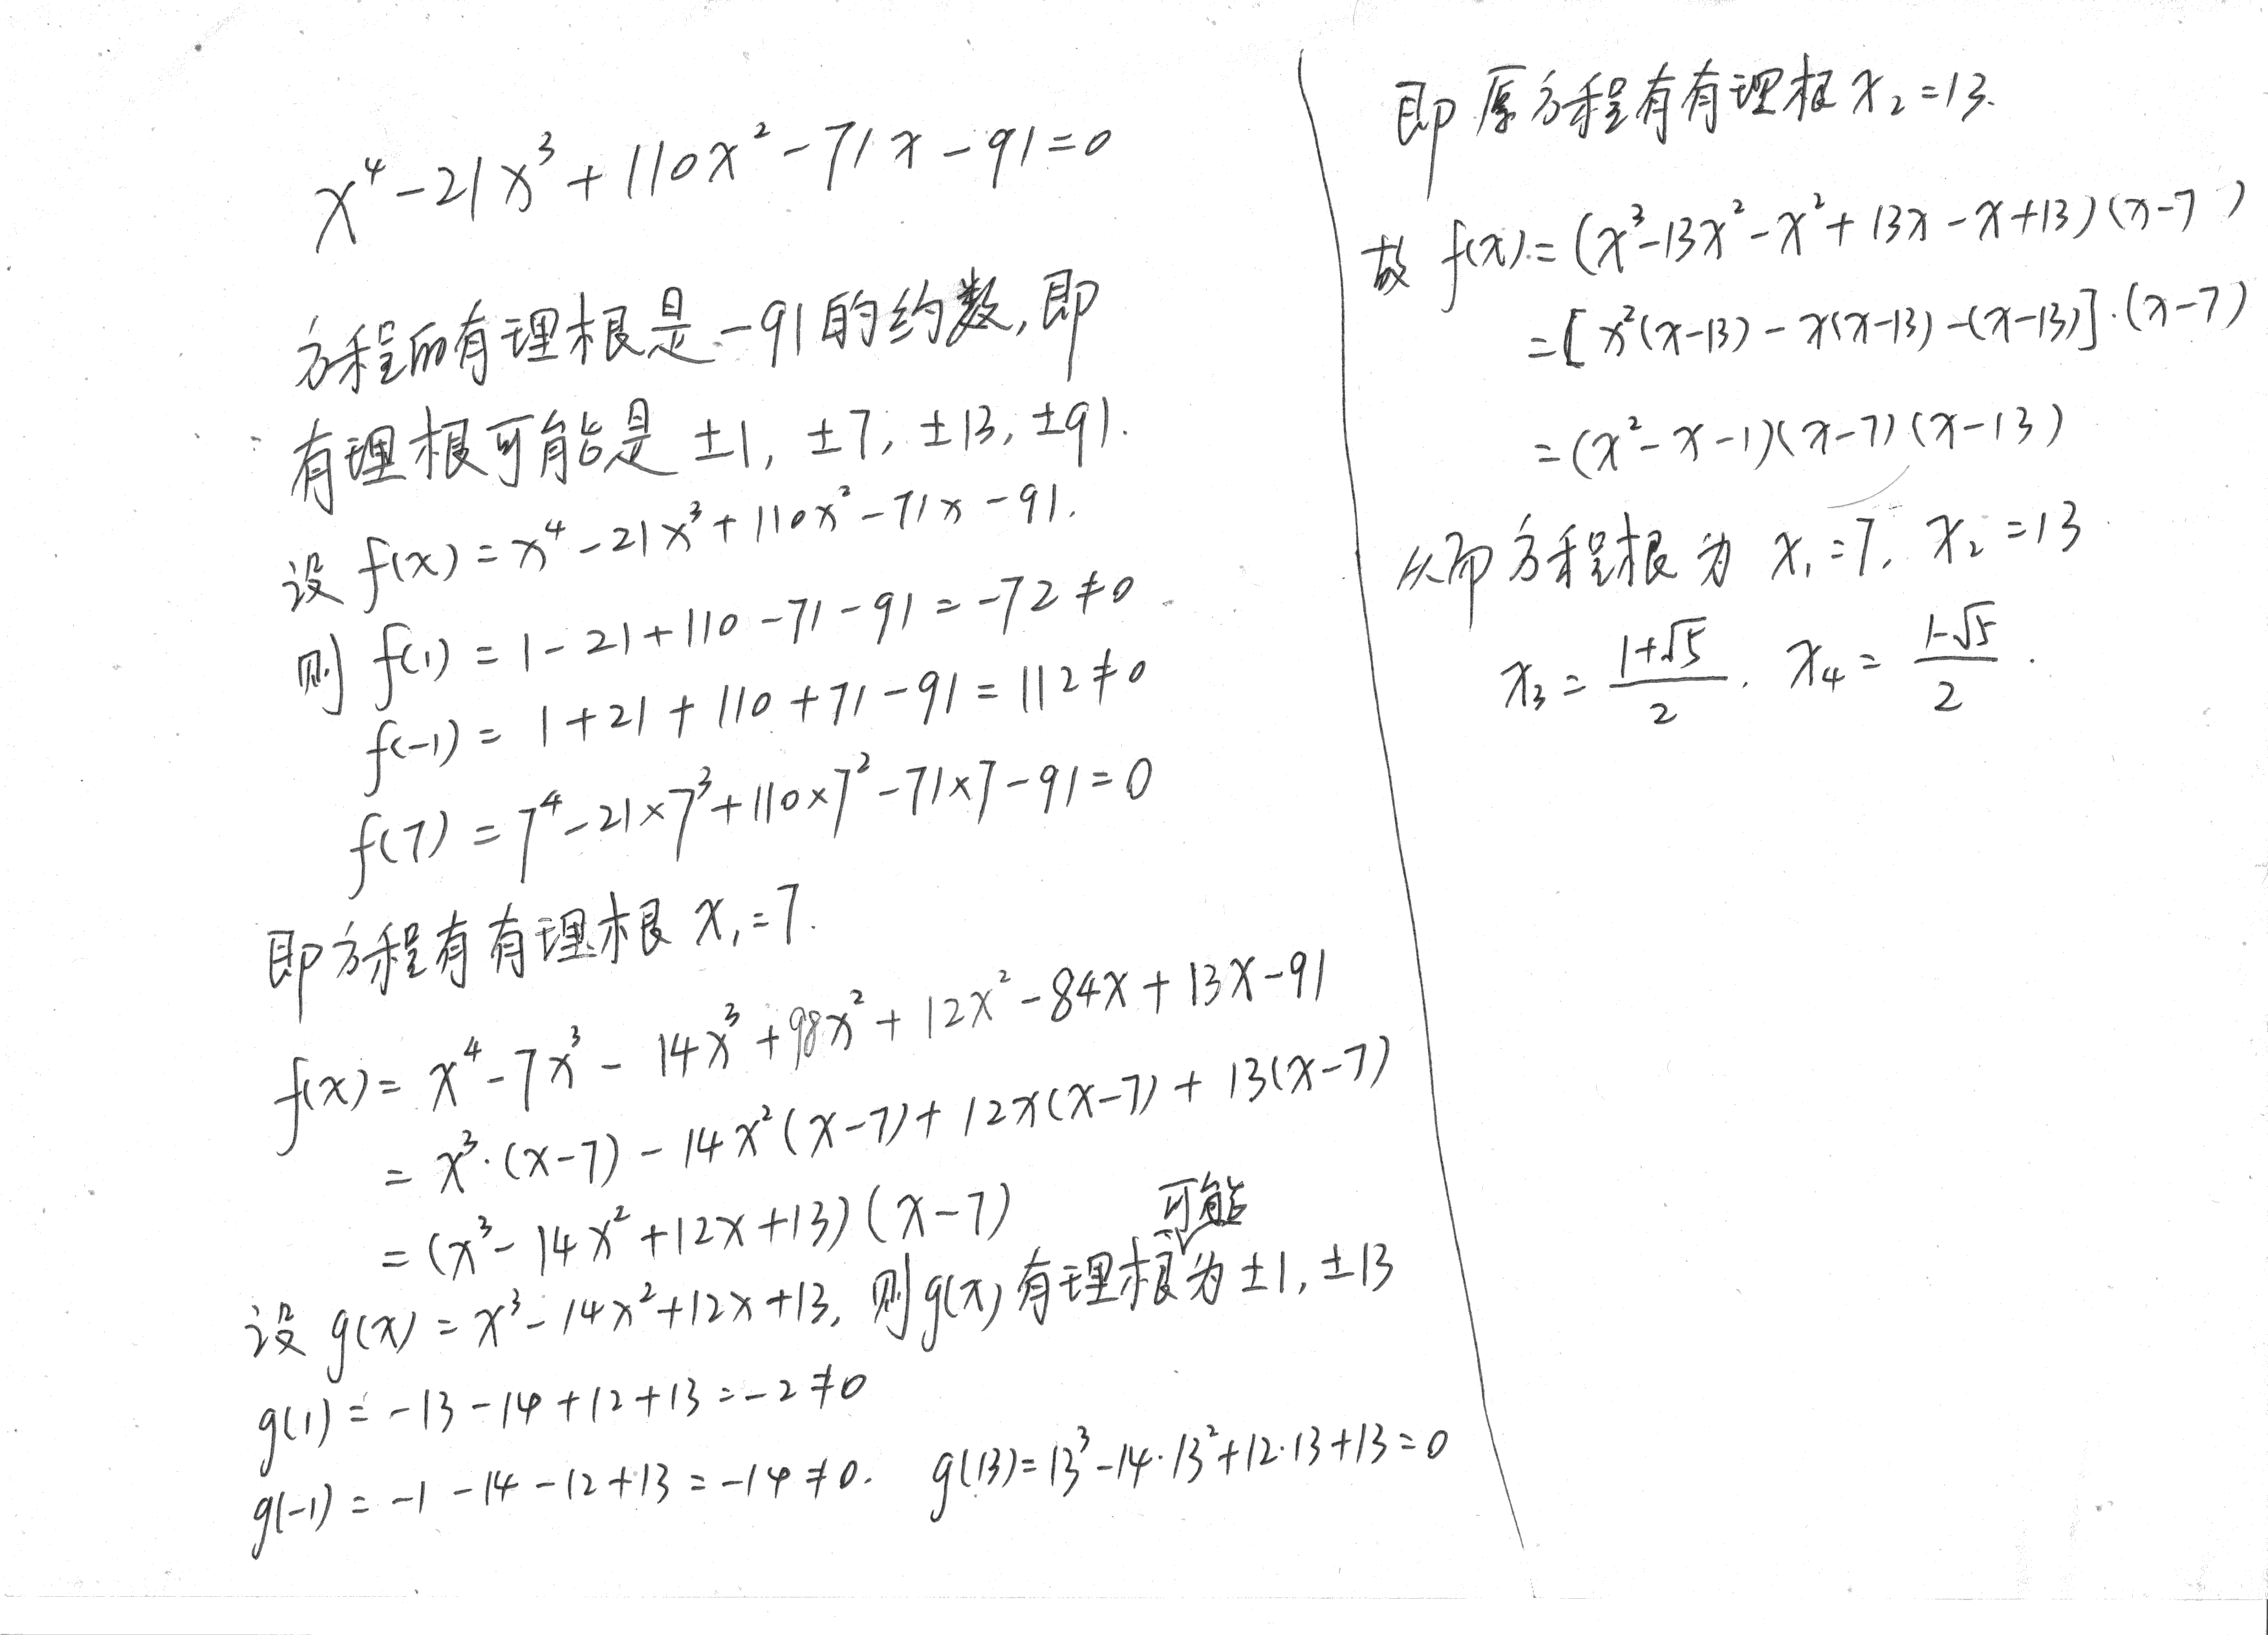 x⁴-21x³+110x²-71x-91=0
方程的有理根是-91的约数,即
有理根可能是 ±1, ±7, ±13, ±91.
设 f(x)=x⁴-21x³+110x²-71x-91.
则 f(1)=1-21+110-71-91=-72≠0
f(-1)=1+21+110+71-91=112≠0
f(7)=7⁴-21×7³+110×7²-71×7-91=0
即方程有有理根 x₁=7.
f(x)=x⁴-7x³-14x³+98x²+12x²-84x+13x-91
=x³·(x-7)-14x²(x-7)+12x(x-7)+13(x-7)
=(x³-14x²+12x+13)(x-7)
可能
设 g(x)=x³-14x²+12x+13, 则g(x)有理根为±1, ±13
g(1)=-13-14+12+13=-2≠0
g(-1)=-1-14-12+13=-14≠0. g(13)=13³-14·13²+12·13+13=0
即原方程有有理根 x₂=13.
故 f(x)=(x³-13x²-x²+13x-x+13)(x-7)
=[x²(x-13)-x(x-13)-(x-13)]·(x-7)
=(x²-x-1)(x-7)(x-13)
从而方程根为 x₁=7, x₂=13
x₃=(1+√5)/2, x₄=(1-√5)/2.